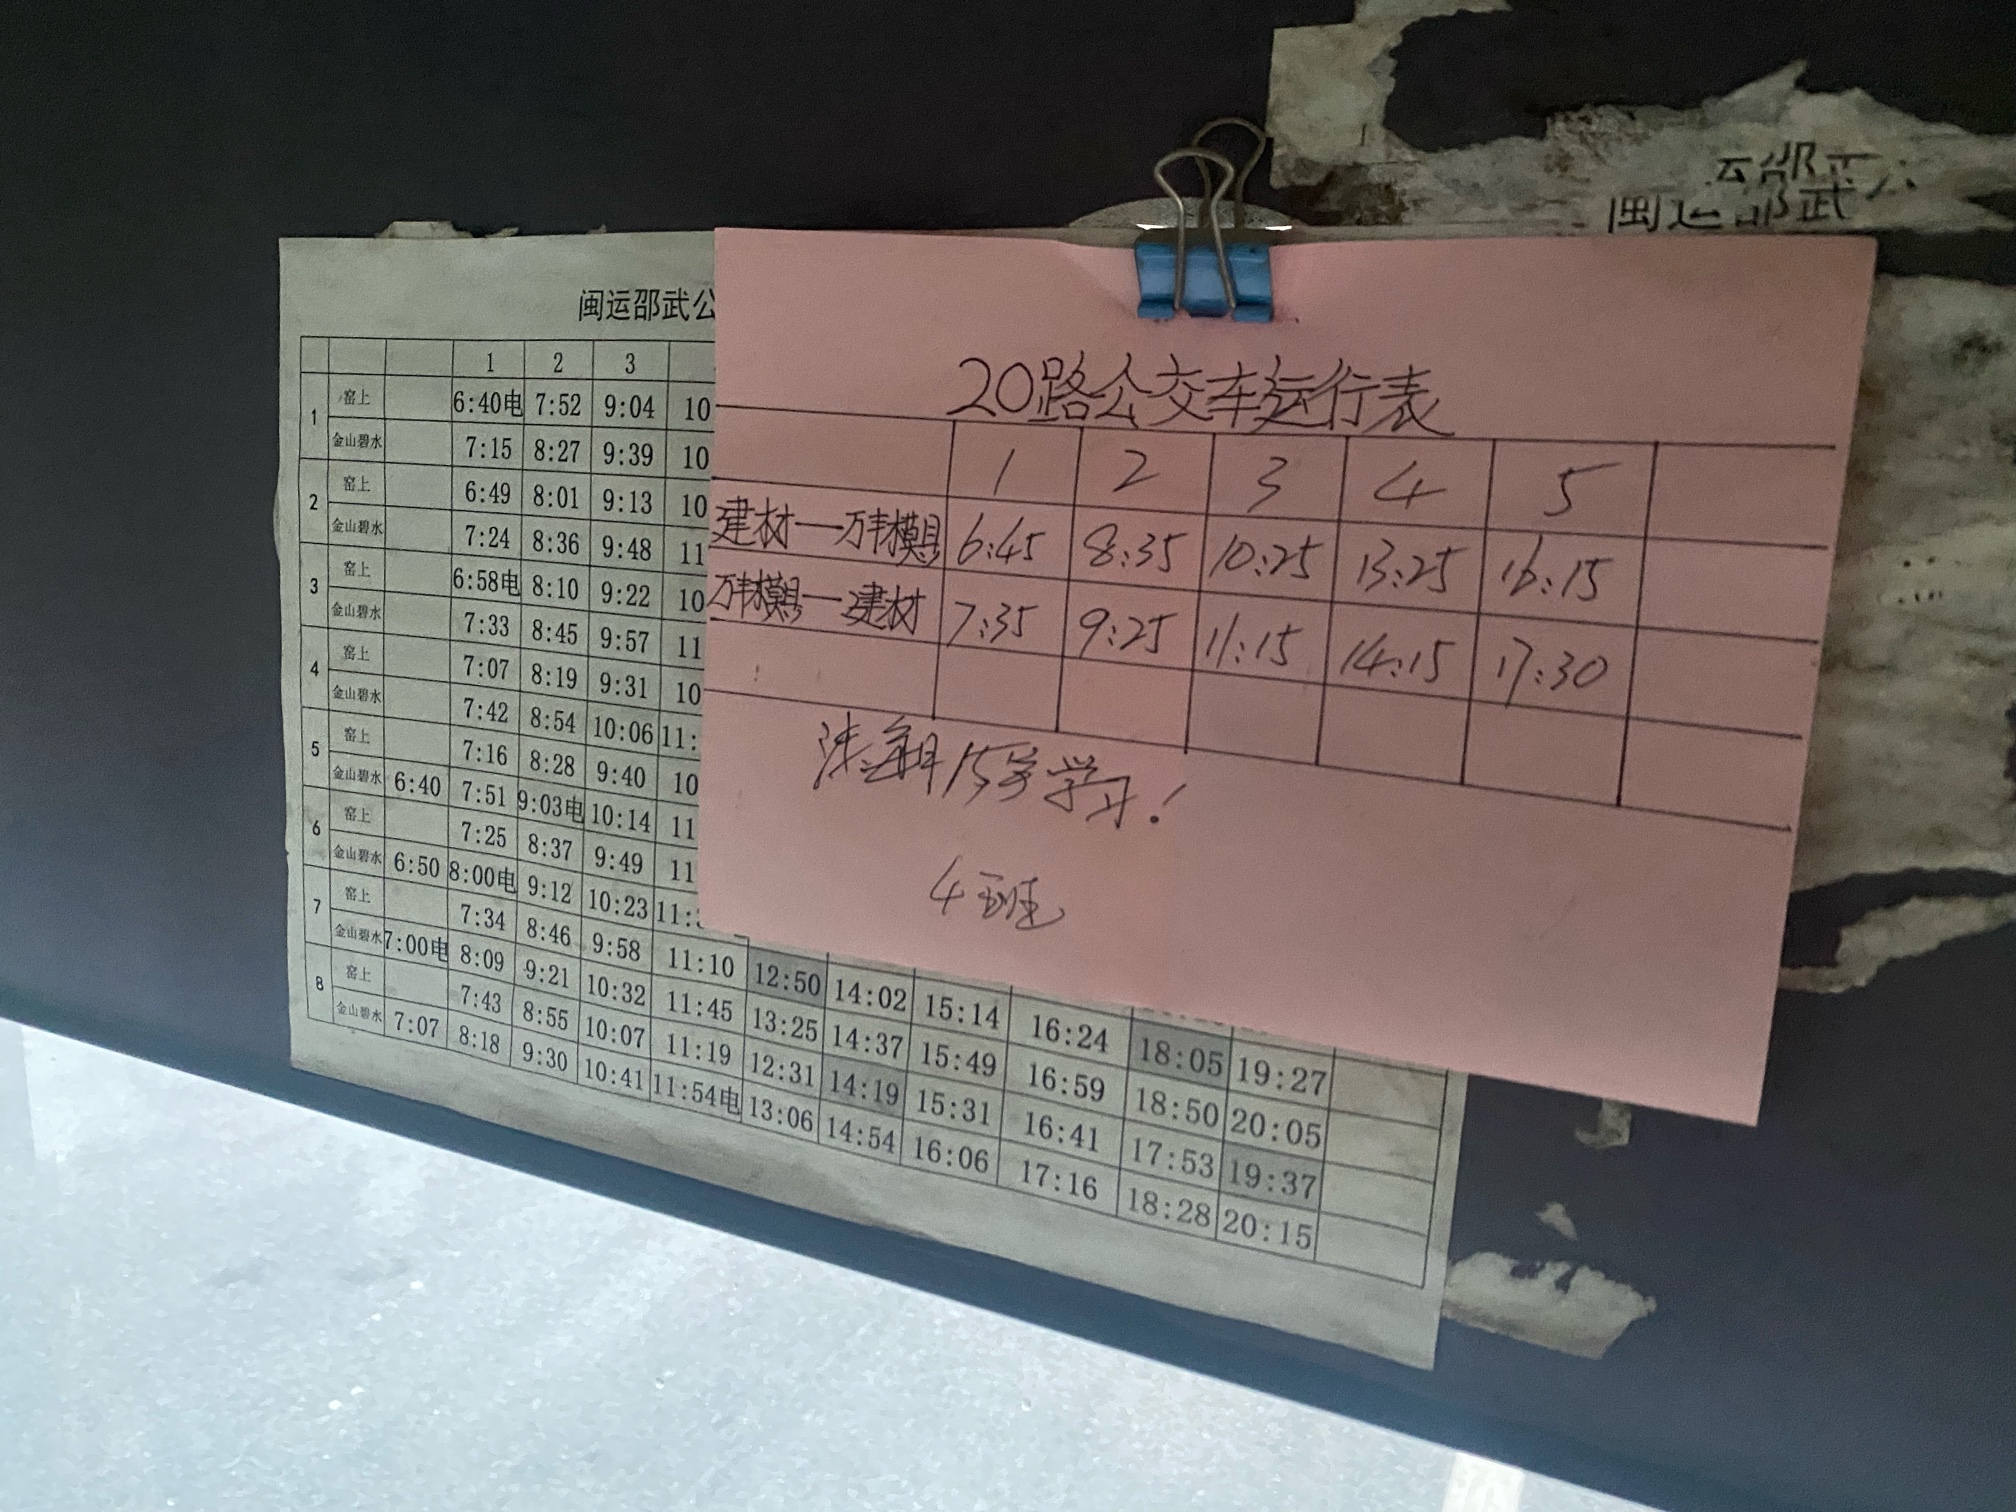 闽运邵武
闽运邵武公
1 2 3
1 窑上 6:40电 7:52 9:04 10
金山碧水 7:15 8:27 9:39 10
2 窑上 6:49 8:01 9:13 10
金山碧水 7:24 8:36 9:48 11
3 窑上 6:58电 8:10 9:22 10
金山碧水 7:33 8:45 9:57 11
4 窑上 7:07 8:19 9:31 10
金山碧水 7:42 8:54 10:06 11:
5 窑上 7:16 8:28 9:40 10
金山碧水 6:40 7:51 9:03电 10:14 11
6 窑上 7:25 8:37 9:49 11
金山碧水 6:50 8:00电 9:12 10:23 11:
7 窑上 7:34 8:46 9:58 11:10 12:50 14:02 15:14 16:24 18:05 19:27
金山碧水 7:00电 8:09 9:21 10:32 11:45 13:25 14:37 15:49 16:59 18:50 20:05
8 窑上 7:43 8:55 10:07 11:19 12:31 14:19 15:31 16:41 17:53 19:37
金山碧水 7:07 8:18 9:30 10:41 11:54电 13:06 14:54 16:06 17:16 18:28 20:15
20路公交车运行表
1 2 3 4 5
建材—万丰模具 6:45 8:35 10:25 13:25 16:15
万丰模具—建材 7:35 9:25 11:15 14:15 17:30
学习!
4班